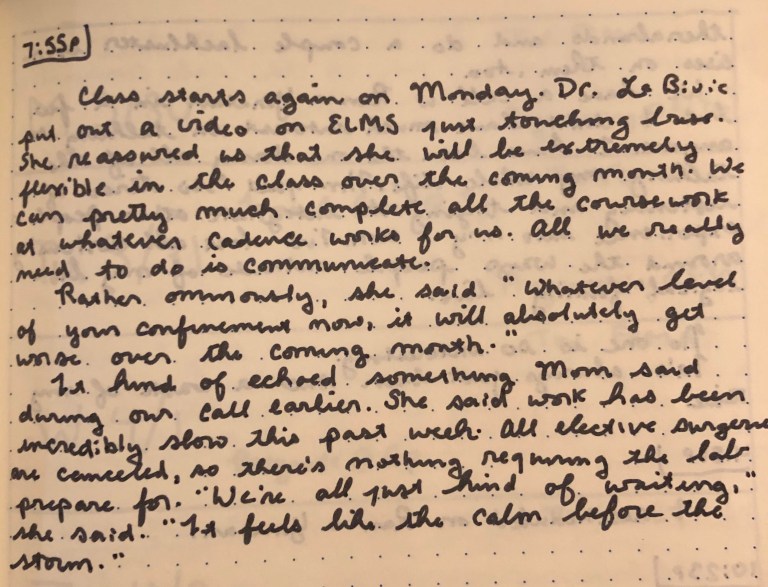 7:55P
Class starts again on Monday. Dr. Le Bivic
put out a video on ELMS just touching base.
She reassured us that she will be extremely
flexible in the class over the coming month. We
can pretty much complete all the coursework
at whatever cadence works for us. All we really
need to do is communicate.
Rather ominously, she said "Whatever level
of your confinement now, it will absolutely get
worse over the coming month."
It kind of echoed something Mom said
during our call earlier. She said work has been
incredibly slow this past week. All elective surgeries
are canceled, so there's nothing requiring the lab
prepare for. "We're all just kind of waiting,"
she said. "It feels like the calm before the
storm."